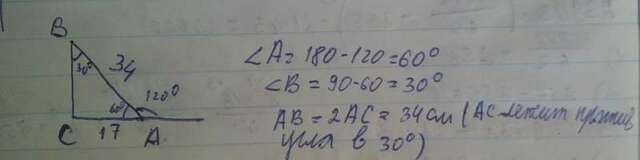 B
30° 34
60° 120°
C 17 A
∠A = 180 - 120 = 60°
∠B = 90 - 60 = 30°
AB = 2AC = 34 см (AC лежит против
угла в 30°)